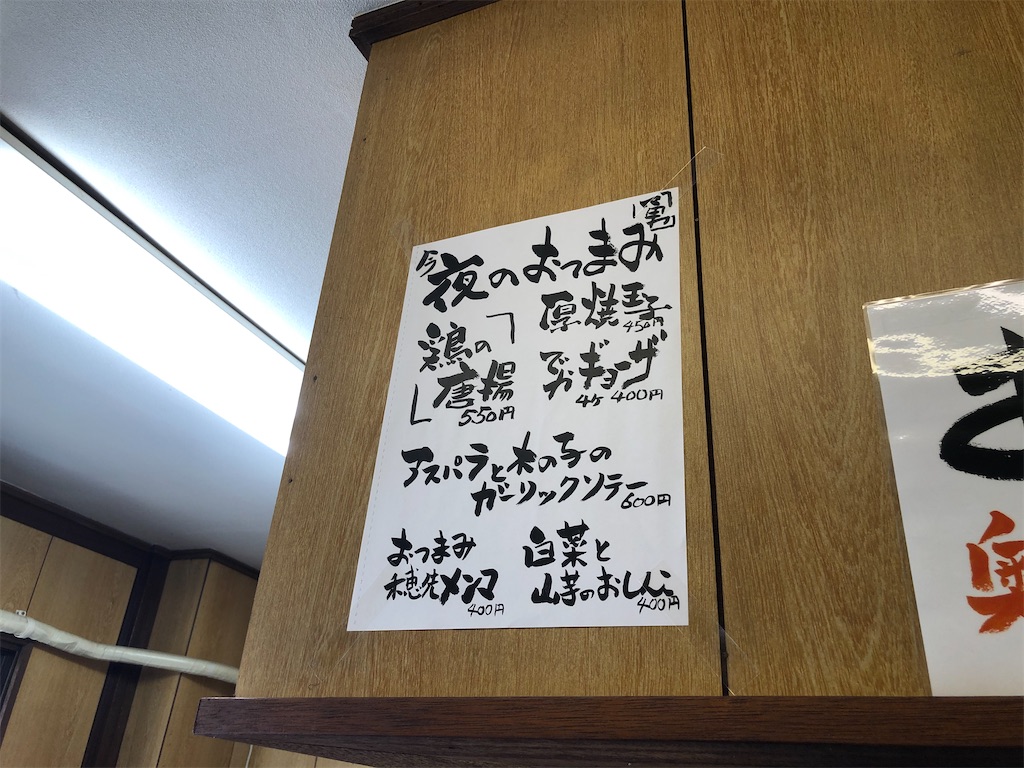 今夜のおつまみ
厚焼玉子
450円
「鶏の
唐揚」
550円
デカギョーザ
4ケ 400円
アスパラと木の子の
ガーリックソテー
600円
おつまみ
穂先メンマ
400円
白菜と
山芋のおしんこ
400円
奥